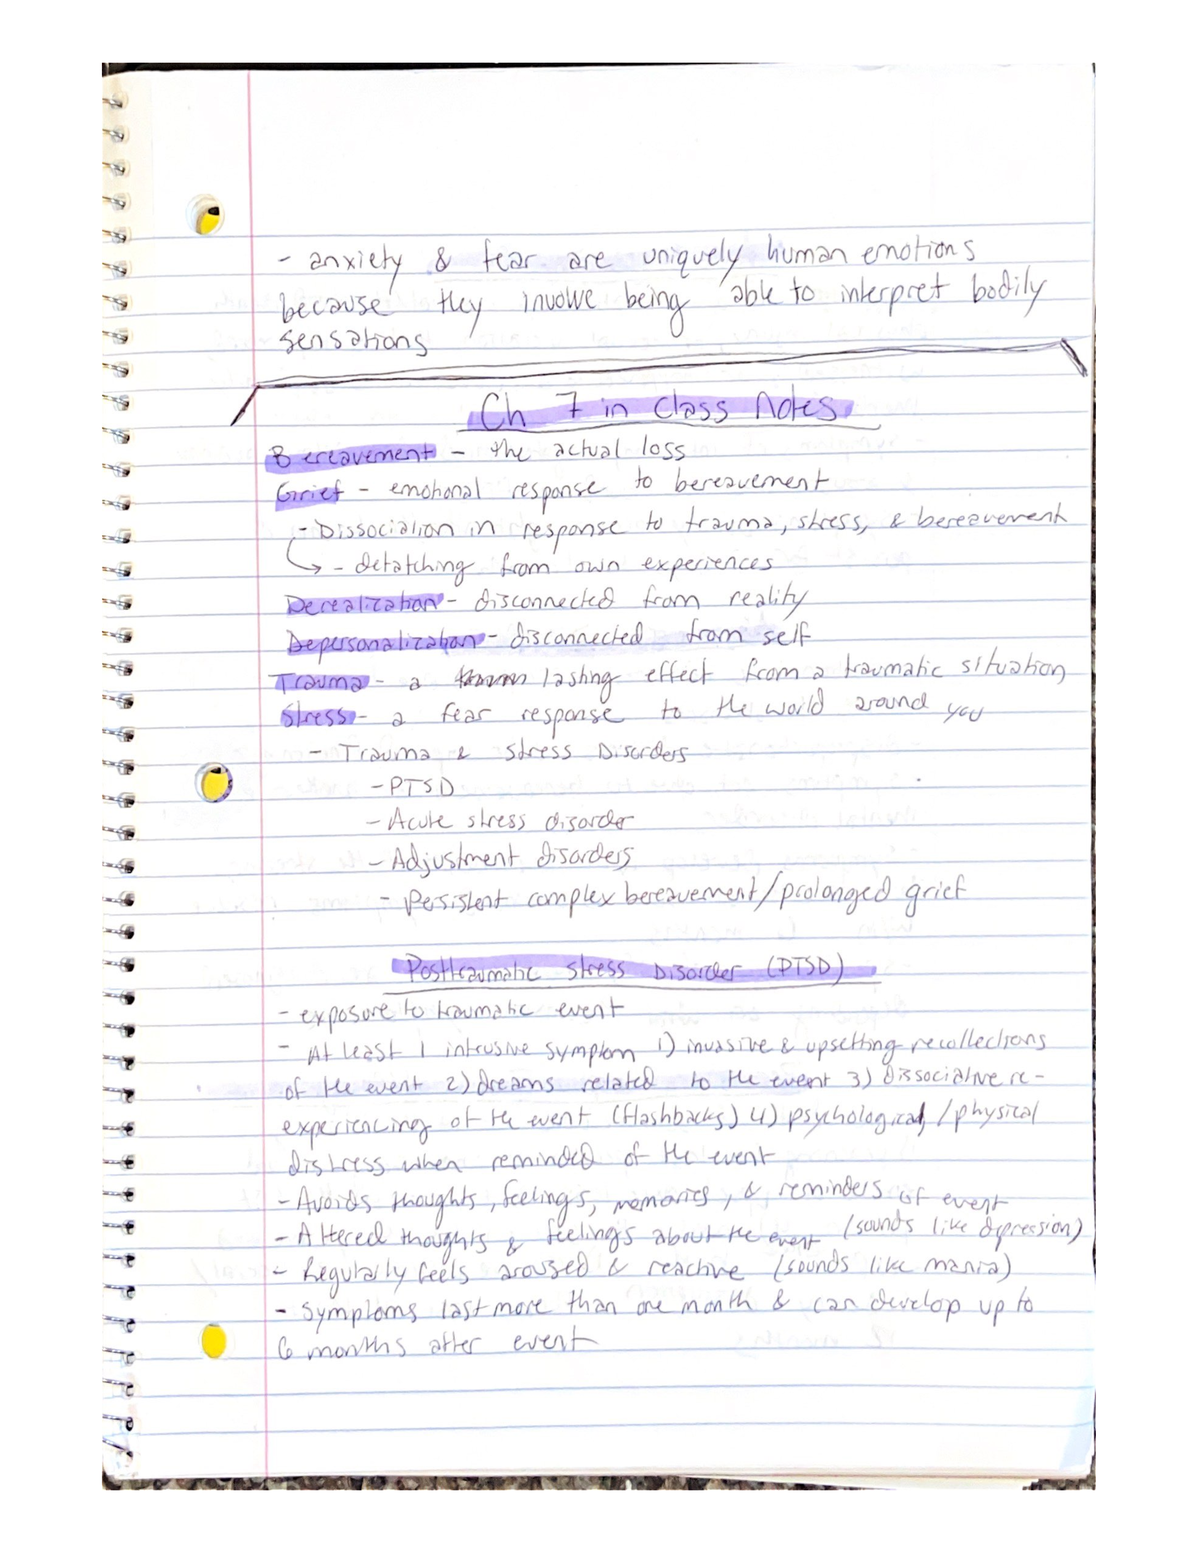 - anxiety & fear are uniquely human emotions
because they involve being able to interpret bodily
sensations
Ch 7 in class Notes
Bereavement - the actual loss
Grief - emotional response to bereavement
- Dissociation in response to trauma, stress, & bereavement
- detatching from own experiences
Derealization - disconnected from reality
Depersonalization - disconnected from self
Trauma - a lasting effect from a traumatic situation
Stress - a fear response to the world around you
- Trauma & Stress Disorders
- PTSD
- Acute stress disorder
- Adjustment disorders
- Persistent complex bereavement/prolonged grief
Posttraumatic Stress Disorder (PTSD)
- exposure to traumatic event
- At least 1 intrusive symptom 1) invasive & upsetting recollections
of the event 2) dreams related to the event 3) dissociative re-
experiencing of the event (flashbacks) 4) psychological/physical
distress when reminded of the event
- Avoids thoughts, feelings, memories, & reminders of event
- Altered thoughts & feelings about the event (sounds like depression)
- Regularly feels aroused & reactive (sounds like mania)
- Symptoms last more than one month & can develop up to
6 months after event